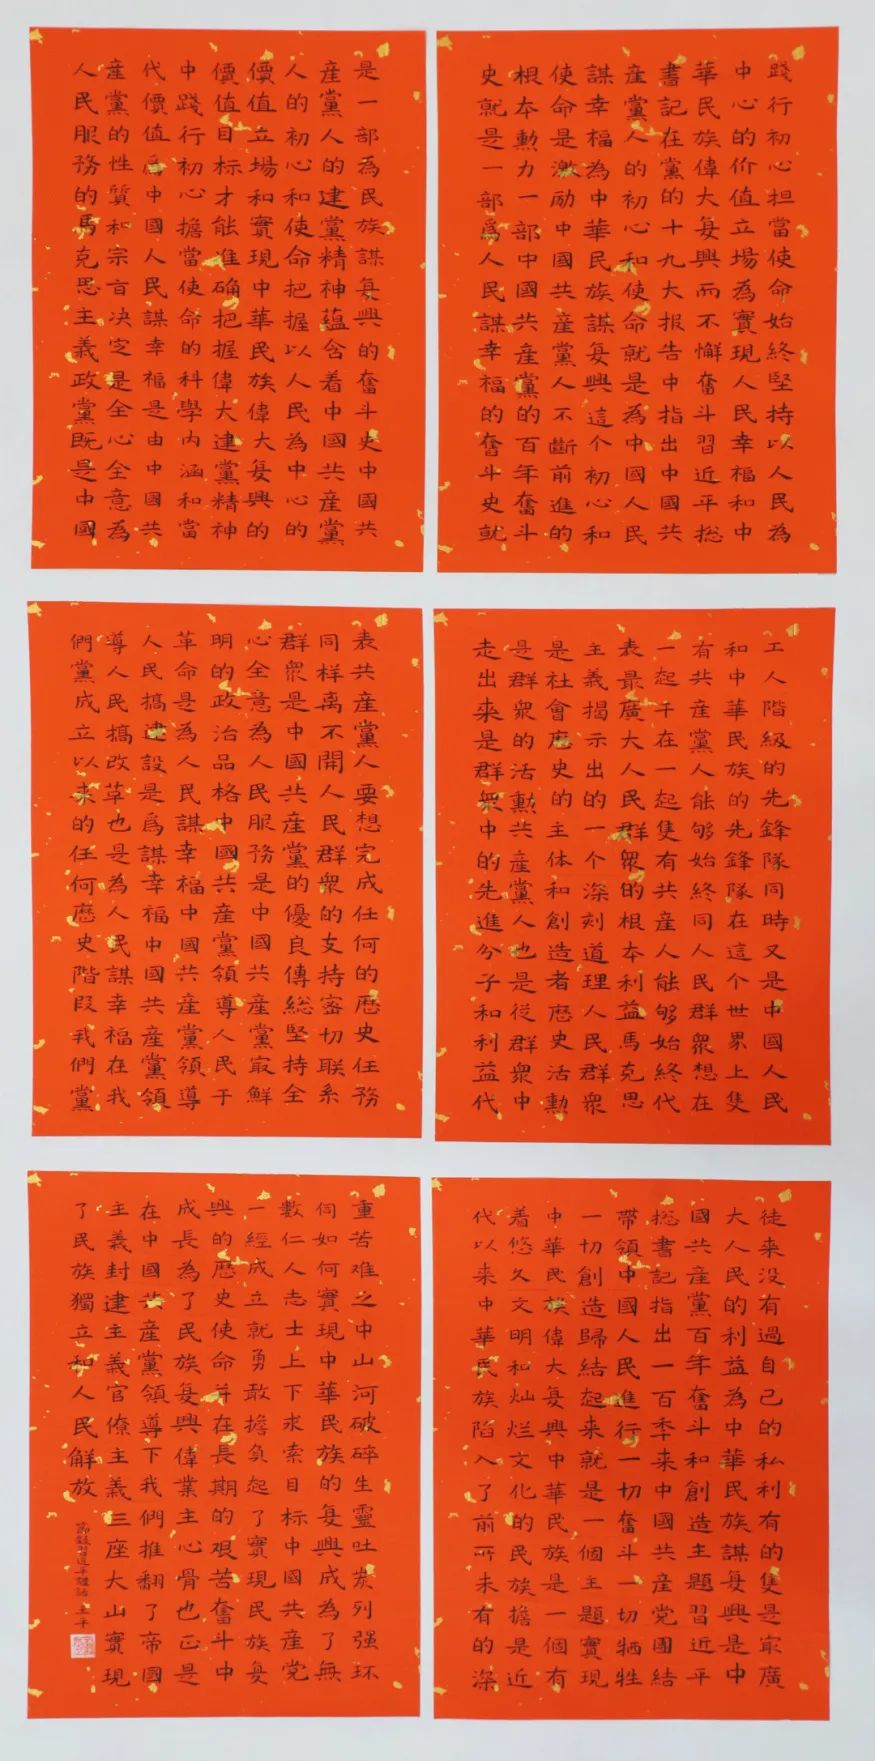 践行初心担當使命始終堅持以人民為
中心的价值立場為實現人民幸福和中
華民族偉大复興而不懈奮斗習近平総
書記在黨的十九大报告中指出中國共
産黨人的初心和使命就是為中國人民
謀幸福為中華民族謀复興這个初心和
使命是激励中國共産黨人不斷前進的
根本動力一部中國共産黨的百年奮斗
史就是一部爲人民謀幸福的奮斗史就
是一部為民族謀复興的奮斗史中國共
産黨人的建黨精神蕴含着中國共産黨
人的初心和使命把握以人民為中心的
價值立場和實現中華民族偉大复興的
價值目标才能准确把握偉大建黨精神
中踐行初心擔當使命的科學内涵和當
代價值爲中國人民謀幸福是由中國共
産黨的性質和宗旨决定是全心全意為
人民服務的馬克思主義政黨既是中國
工人階級的先鋒隊同時又是中國人民
和中華民族的先鋒隊在這个世界上隻
有共産黨人能够始終同人民群衆想在
一起干在一起隻有共産人能够始終代
表最廣大人民群衆的根本利益馬克思
主義揭示出的一个深刻道理人民群衆
是社會歷史的主体和創造者歷史活動
是群衆的活動共産黨人也是從群衆中
走出來是群衆中的先進分子和利益代
表共産黨人要想完成任何的歷史任務
同样离不開人民群衆的支持密切联系
群衆是中國共産黨的優良傳総堅持全
心全意為人民服務是中國共産黨最鮮
明的政治品格中國共産黨領導人民干
革命是為人民謀幸福中國共産黨領導
人民搞建設是爲謀幸福中國共産黨領
導人民搞改革也是為人民謀幸福在我
們黨成立以来的任何歷史階段我們黨
徒来没有過自己的私利有的隻是最廣
大人民的利益為中華民族謀复興是中
國共産黨百年奮斗和創造主題習近平
総書記指出一百年来中國共産党團結
帶領中國人民進行一切奮斗一切牺牲
一切創造歸結起来就是一個主題實現
中華民族偉大复興中華民族是一個有
着悠久文明和灿烂文化的民族擔是近
代以来中華民族陷入了前所未有的深
重苦难之中山河破碎生靈吐炭列强环
伺如何實現中華民族的复興成為了無
數仁人志士上下求索目标中國共産党
一經成立就勇敢擔負起了實現民族复
興的歷史使命并在長期的艰苦奮斗中
成長為了民族复興偉業主心骨也正是
在中國共産黨領導下我們推翻了帝國
主義封建主義官僚主義三座大山實現
了民族獨立和人民解放